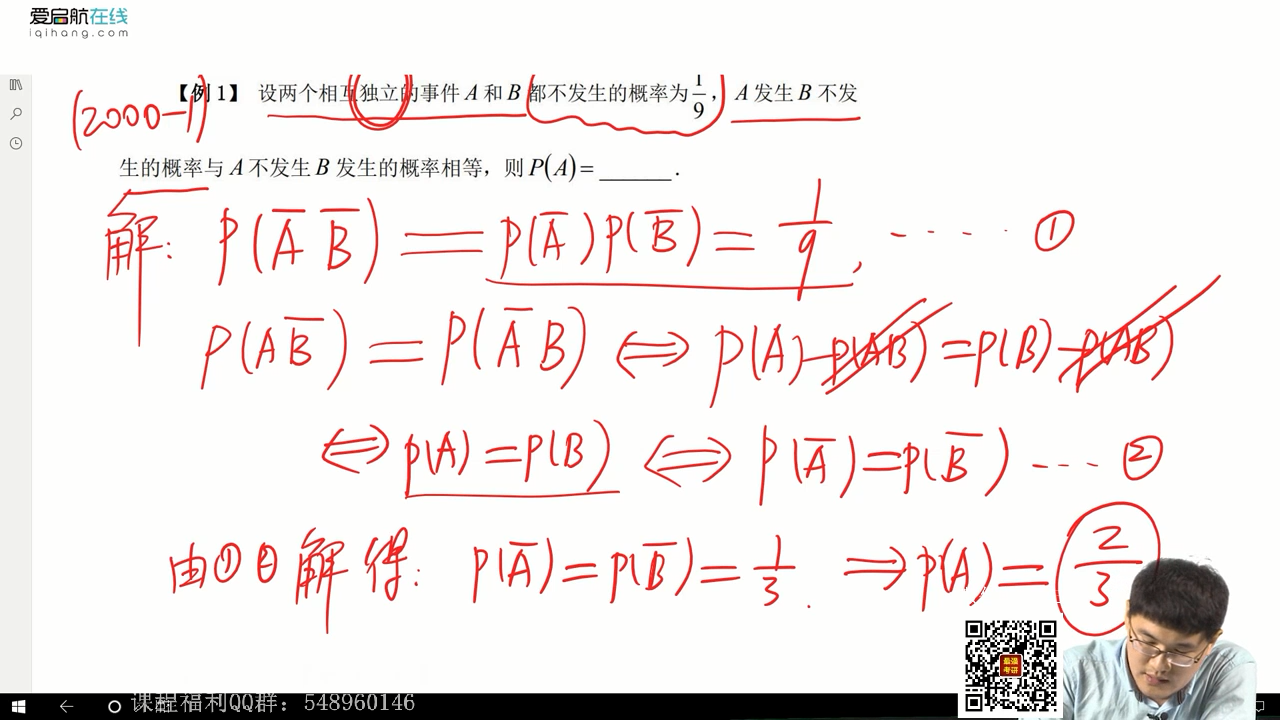 爱启航在线
iqihang.com
【例1】 设两个相互独立的事件 A 和 B 都不发生的概率为 1/9， A 发生 B 不发
(2000-1)
生的概率与 A 不发生 B 发生的概率相等，则 P(A)= ______ .
解: P(A̅ B̅) = P(A̅)P(B̅) = 1/9, ····· ①
P(AB̅) = P(A̅B) ⇔ P(A)-P(AB)=P(B)-P(AB)
⇔ P(A)=P(B) ⇔ P(A̅)=P(B̅) ···· ②
由①②解得: P(A̅)=P(B̅)=1/3. ⇒ P(A)=2/3
最强考研
课程福利QQ群：548960146